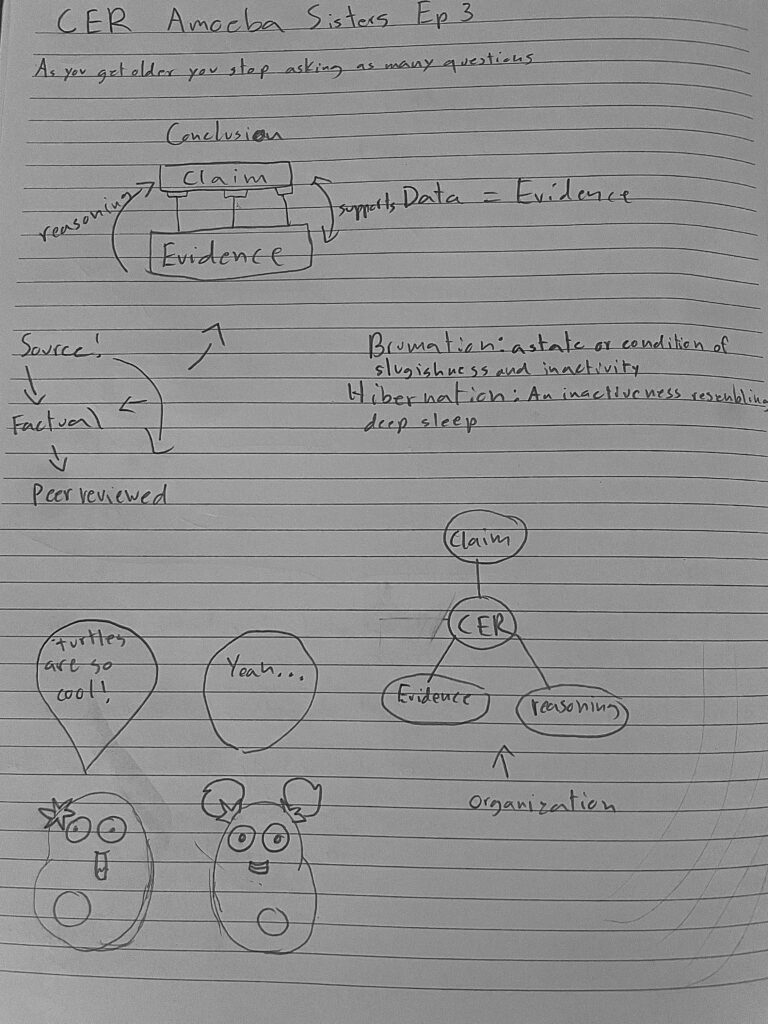 CER Amoeba Sisters Ep 3
As you get older you stop asking as many questions
Conclusion
Claim
reasoning
supports
Data = Evidence
Evidence
Source!
Factual
Peer reviewed
Brumation: a state or condition of
slugishness and inactivity
Hibernation: An inactiveness resembling
deep sleep
Claim
CER
Evidence
reasoning
Organization
turtles
are so
cool!
Yeah...